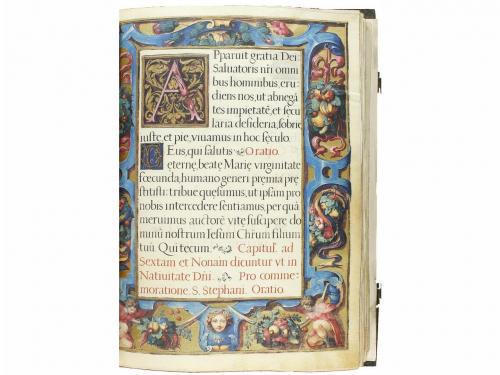 Apparuit gratia Dei
Saluatoris nr̃i omni
bus hominibus, eru⸗
diens nos, ut abnegã
tes impietatẽ, et sęcu
laria desideria, sobrie
iuste et pie, viuamus in hoc sęculo.
Deus, qui salutis Oratio.
ęternę, beatę Marię virginitate
fœcunda, humano generi pręmia prę
stitisti: tribue quęsumus, ut ipsam pro
nobis intercedere sentiamus, per quã
meruimus auctorẽ vitę suscipere do
minũ nostrum Iesum Chr̃um filium
tuũ Qui tecum. Capituł. ad
Sextam et Nonam dicuntur vt in
Natiuitate Dñi. Pro comme⸗
moratione S. Stephani. Oratio.